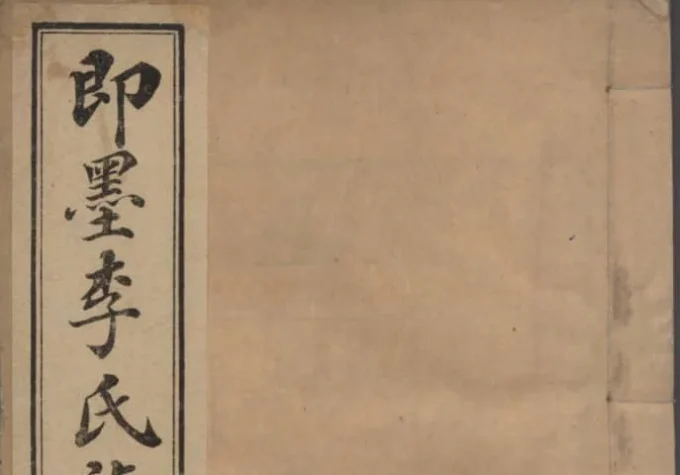 即墨李氏